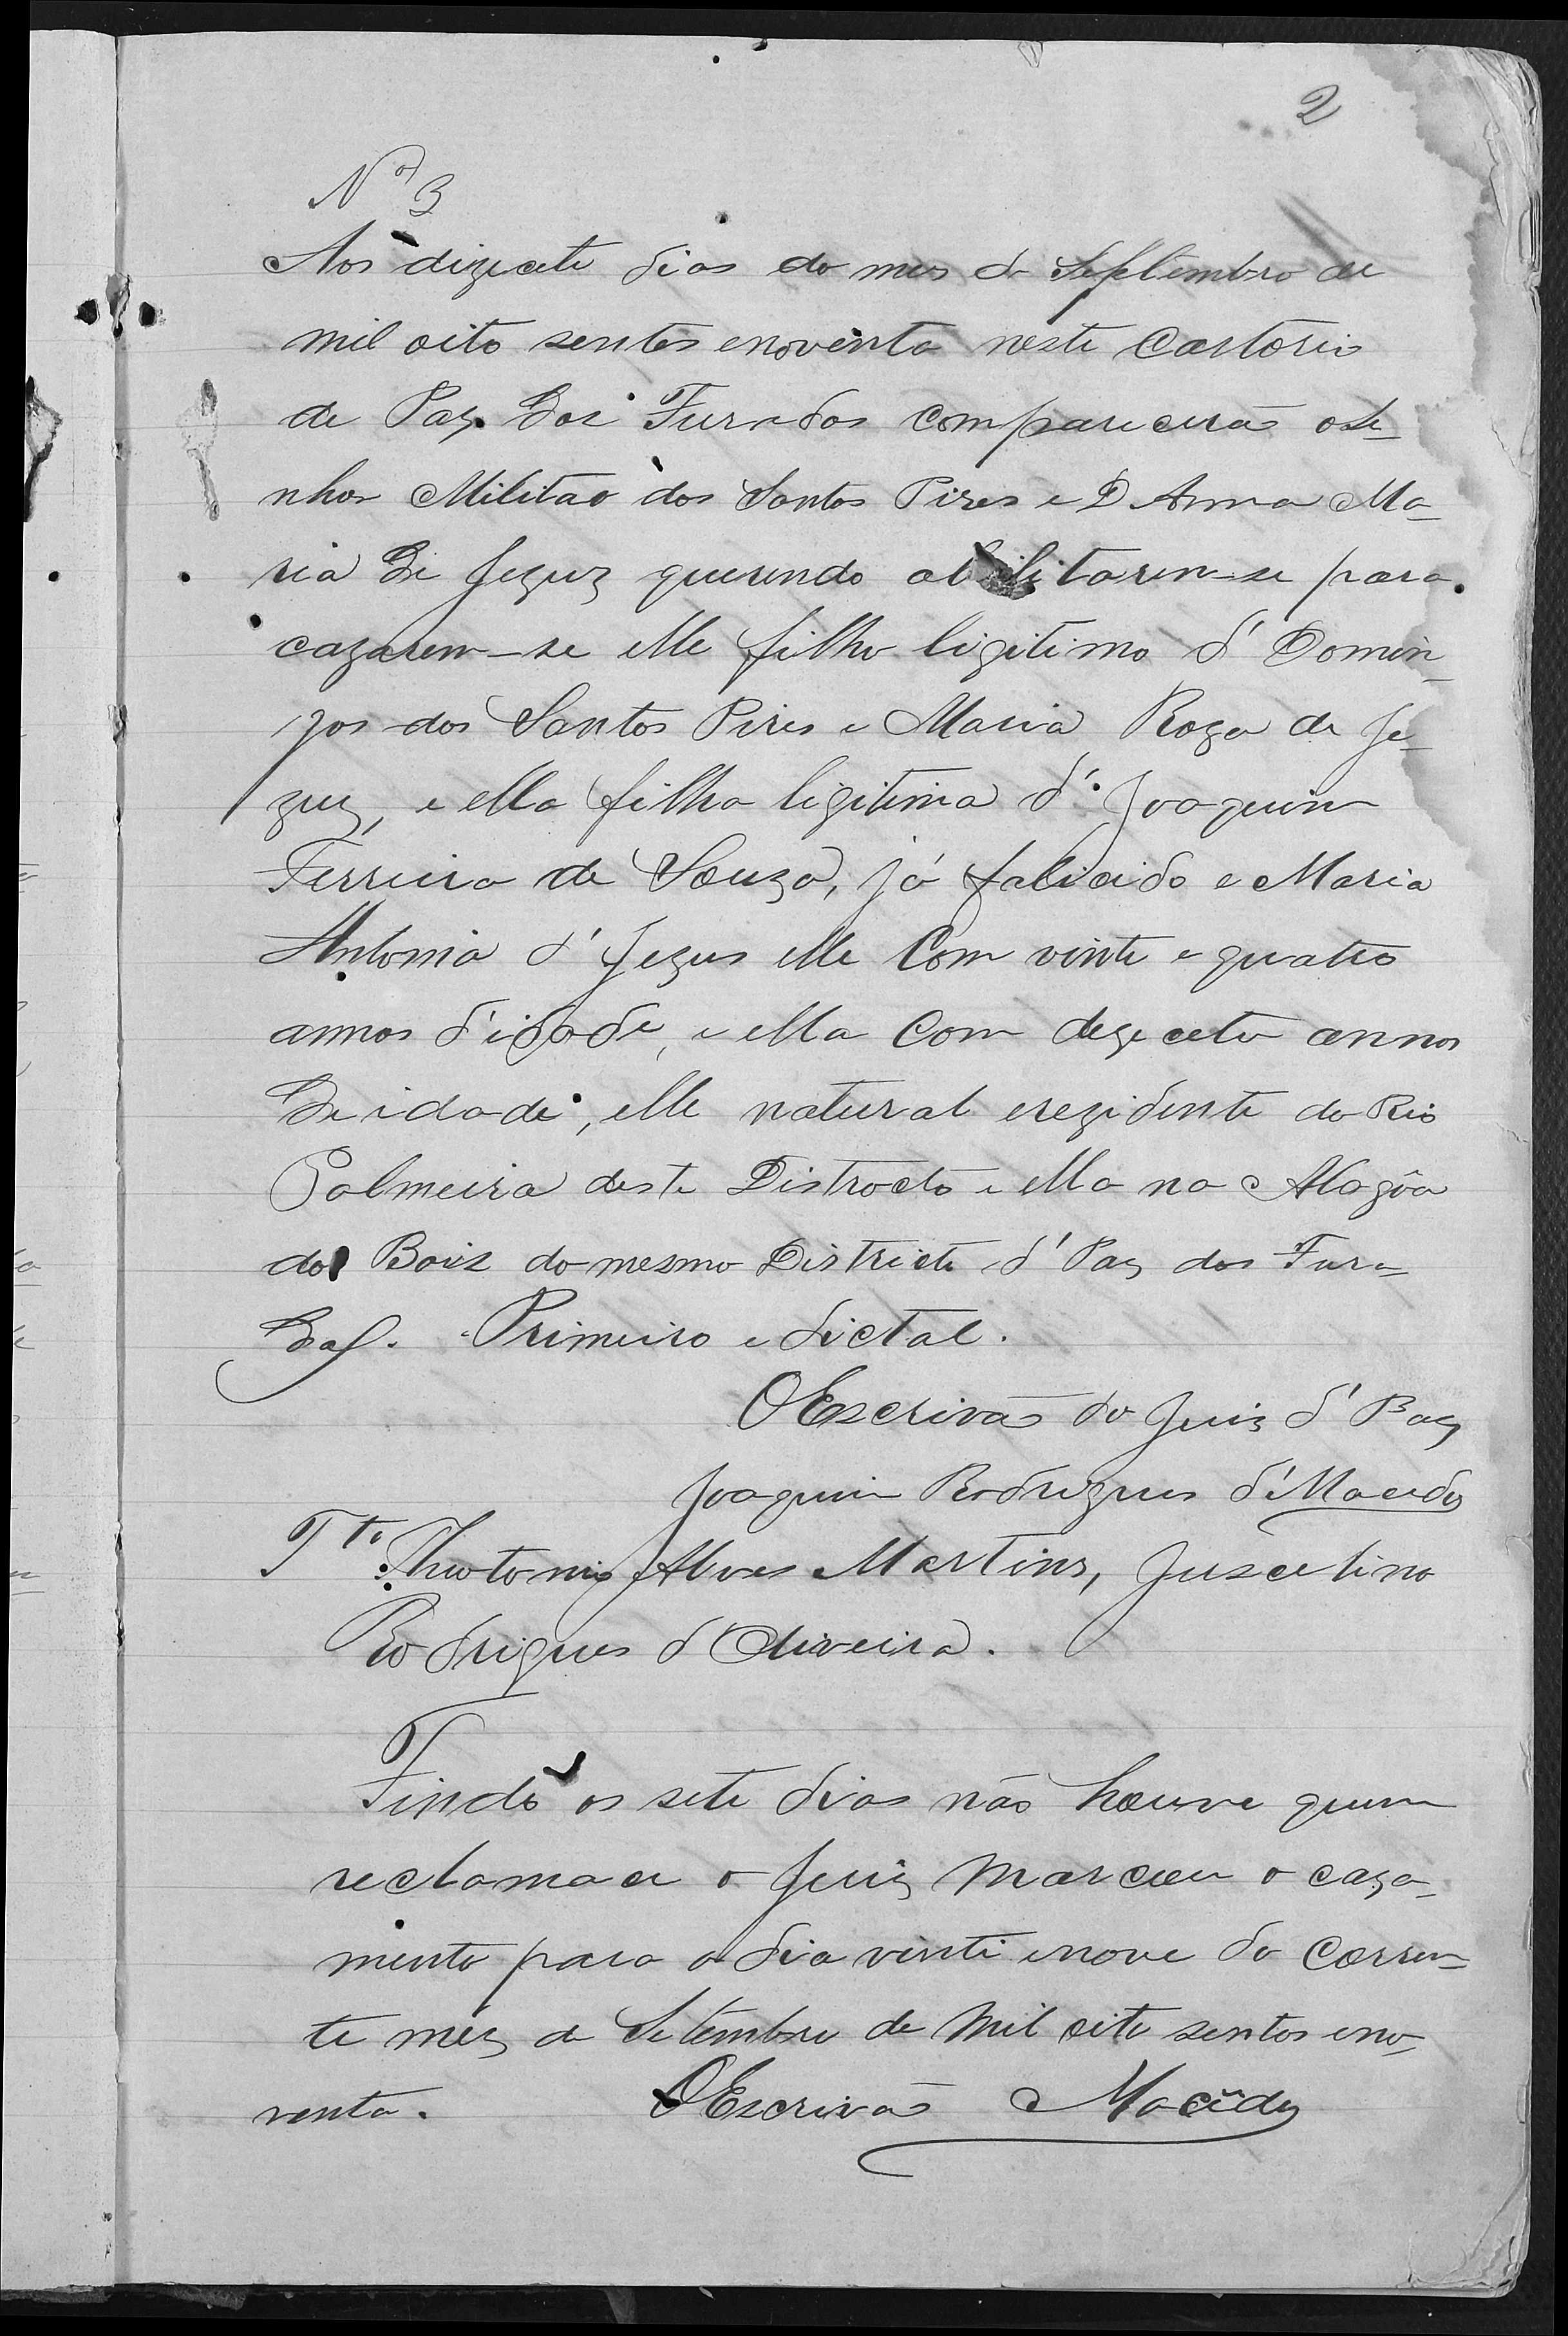 2
Nº 3
Aos dizecete dias do mes de Septembro de
mil oito sentos enoventa neste Cartorio
de Paz dos Furados comparecerão o Se-
nhor Militão dos Santos Pires e D. Anna Ma-
ria de Jezuz querendo abilitarem-se para
cazarem-se elle filho ligitimo d' Domin-
gos dos Santos Pires e Maria Roza de Je-
zuz, e ella filha ligitima d' Joaquim
Ferreira de Souza, já falicido e Maria
Antonia d' Jezus elle Com vinte e quatro
annos d'idade, e ella Com dezecete annos
de idade, elle natural erezidente do Rio
Palmeira deste Distrocto e ella na Alagôa
dos Boiz do mesmo Districto d' Paz dos Fura-
dos. Primeiro edictal.
O Escrivão do Juiz d' Paz
Joaquim Rodrigues d' Macedo
Tte Theotonio Alves Martins, Juscelino
Rodrigues d'Oliveira.
Findo os sete dias não houve quem
reclamace o Juiz marcou o caza-
mento para o dia vinti enove do Corren-
te mêz de Setembro de Mil oito sentos eno-
venta. O Escrivão Macêdo